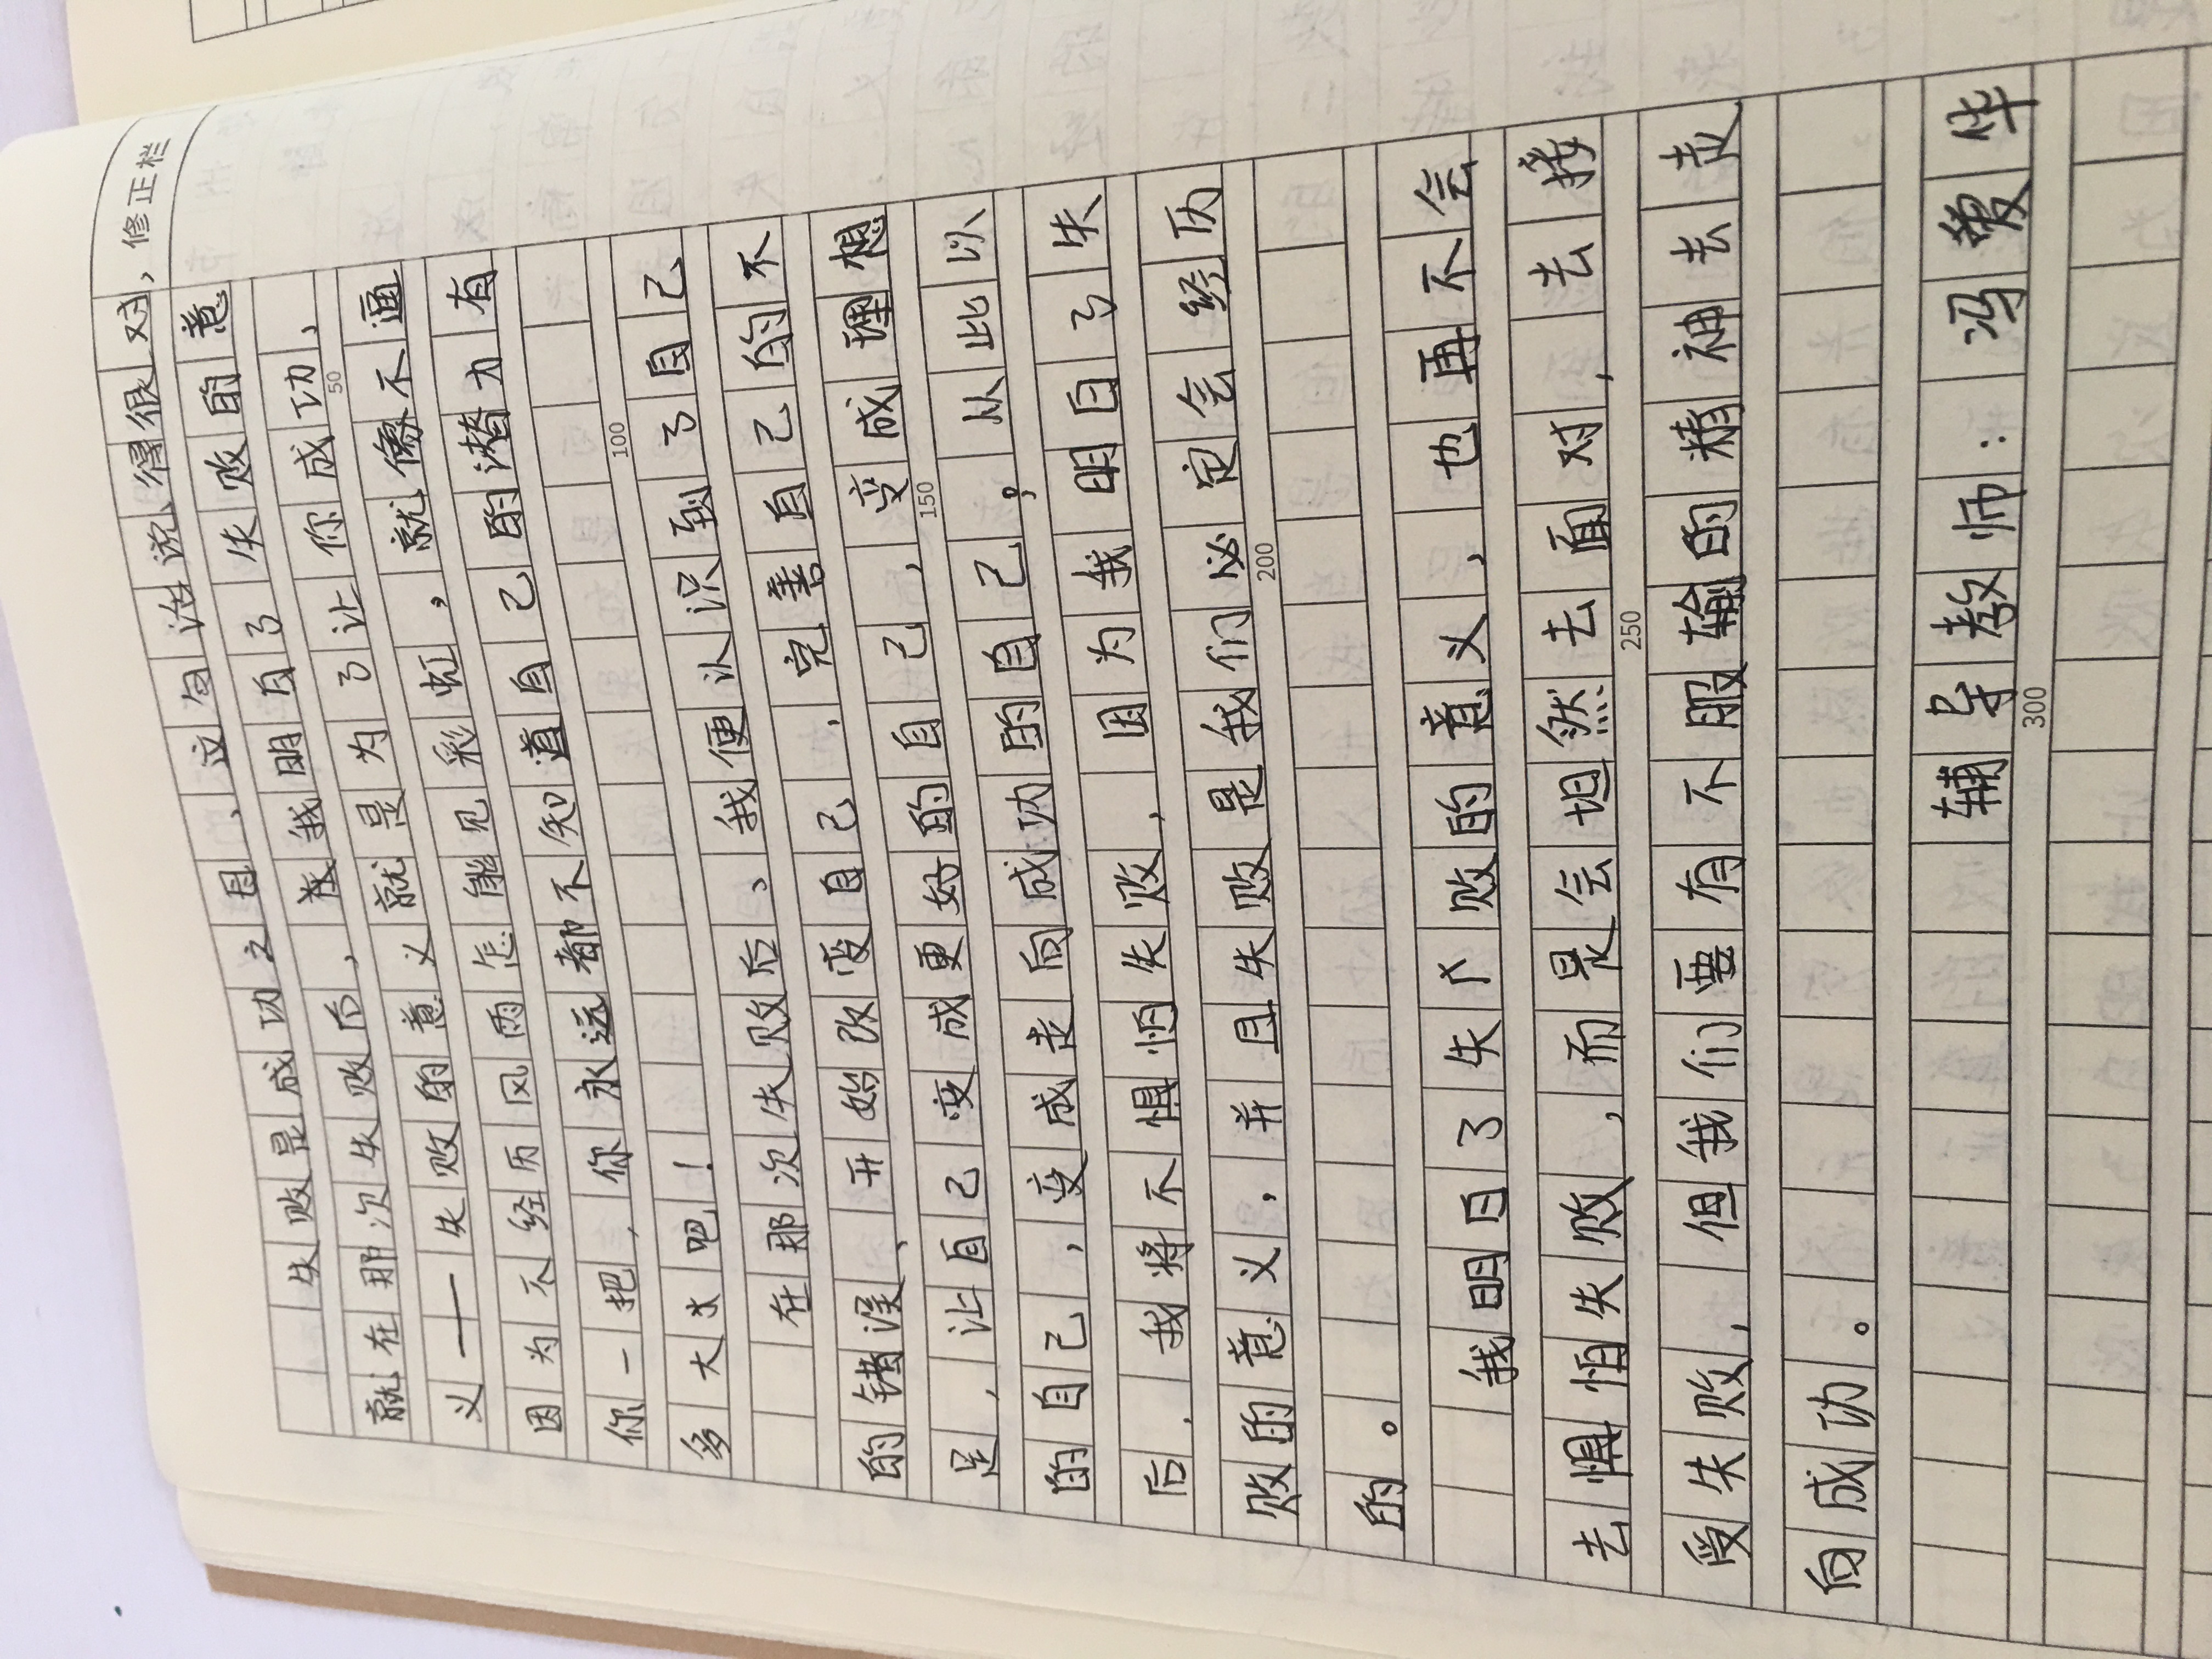 失败是成功之母、这句话说得很对,
就在那次失败后,在我明白了失败的意
义——失败的意义就是为了让你成功、
因为不经历风雨怎能见彩虹,就像不逼
你一把,你永远都不知道自己的潜力有
多大 吧!
在那次失败后、我便认识到了自己
的错误、开始改变自己,完善自己的不
足,让自己变成更好的自己,变成理想
的自己,变成走向成功的自己。从此以
后,我将不惧怕失败,因为我明白了失
败的意义,并且失败是我们必定会经历
的。
我明日了失 败的意义、也再不会
去惧怕失败,而是会坦然去面对,去接
受失败,但我们要有不服输的精神去走
向成功。
辅导教师:冯 华
修正栏
50
100
150
200
250
300